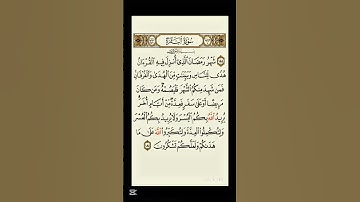 سُورَةُ الْبَقَرَةِ
شَهْرُ رَمَضَانَ الَّذِي أُنْزِلَ فِيهِ الْقُرْءَانُ
هُدًى لِلنَّاسِ وَبَيِّنَاتٍ مِنَ الْهُدَى وَالْفُرْقَانِ
فَمَنْ شَهِدَ مِنْكُمُ الشَّهْرَ فَلْيَصُمْهُ وَمَنْ كَانَ
مَرِيضًا أَوْ عَلَى سَفَرٍ فَعِدَّةٌ مِنْ أَيَّامٍ أُخَرَ
يُرِيدُ اللَّهُ بِكُمُ الْيُسْرَ وَلَا يُرِيدُ بِكُمُ الْعُسْرَ
وَلِتُكْمِلُوا الْعِدَّةَ وَلِتُكَبِّرُوا اللَّهَ عَلَى مَا
هَدَاكُمْ وَلَعَلَّكُمْ تَشْكُرُونَ